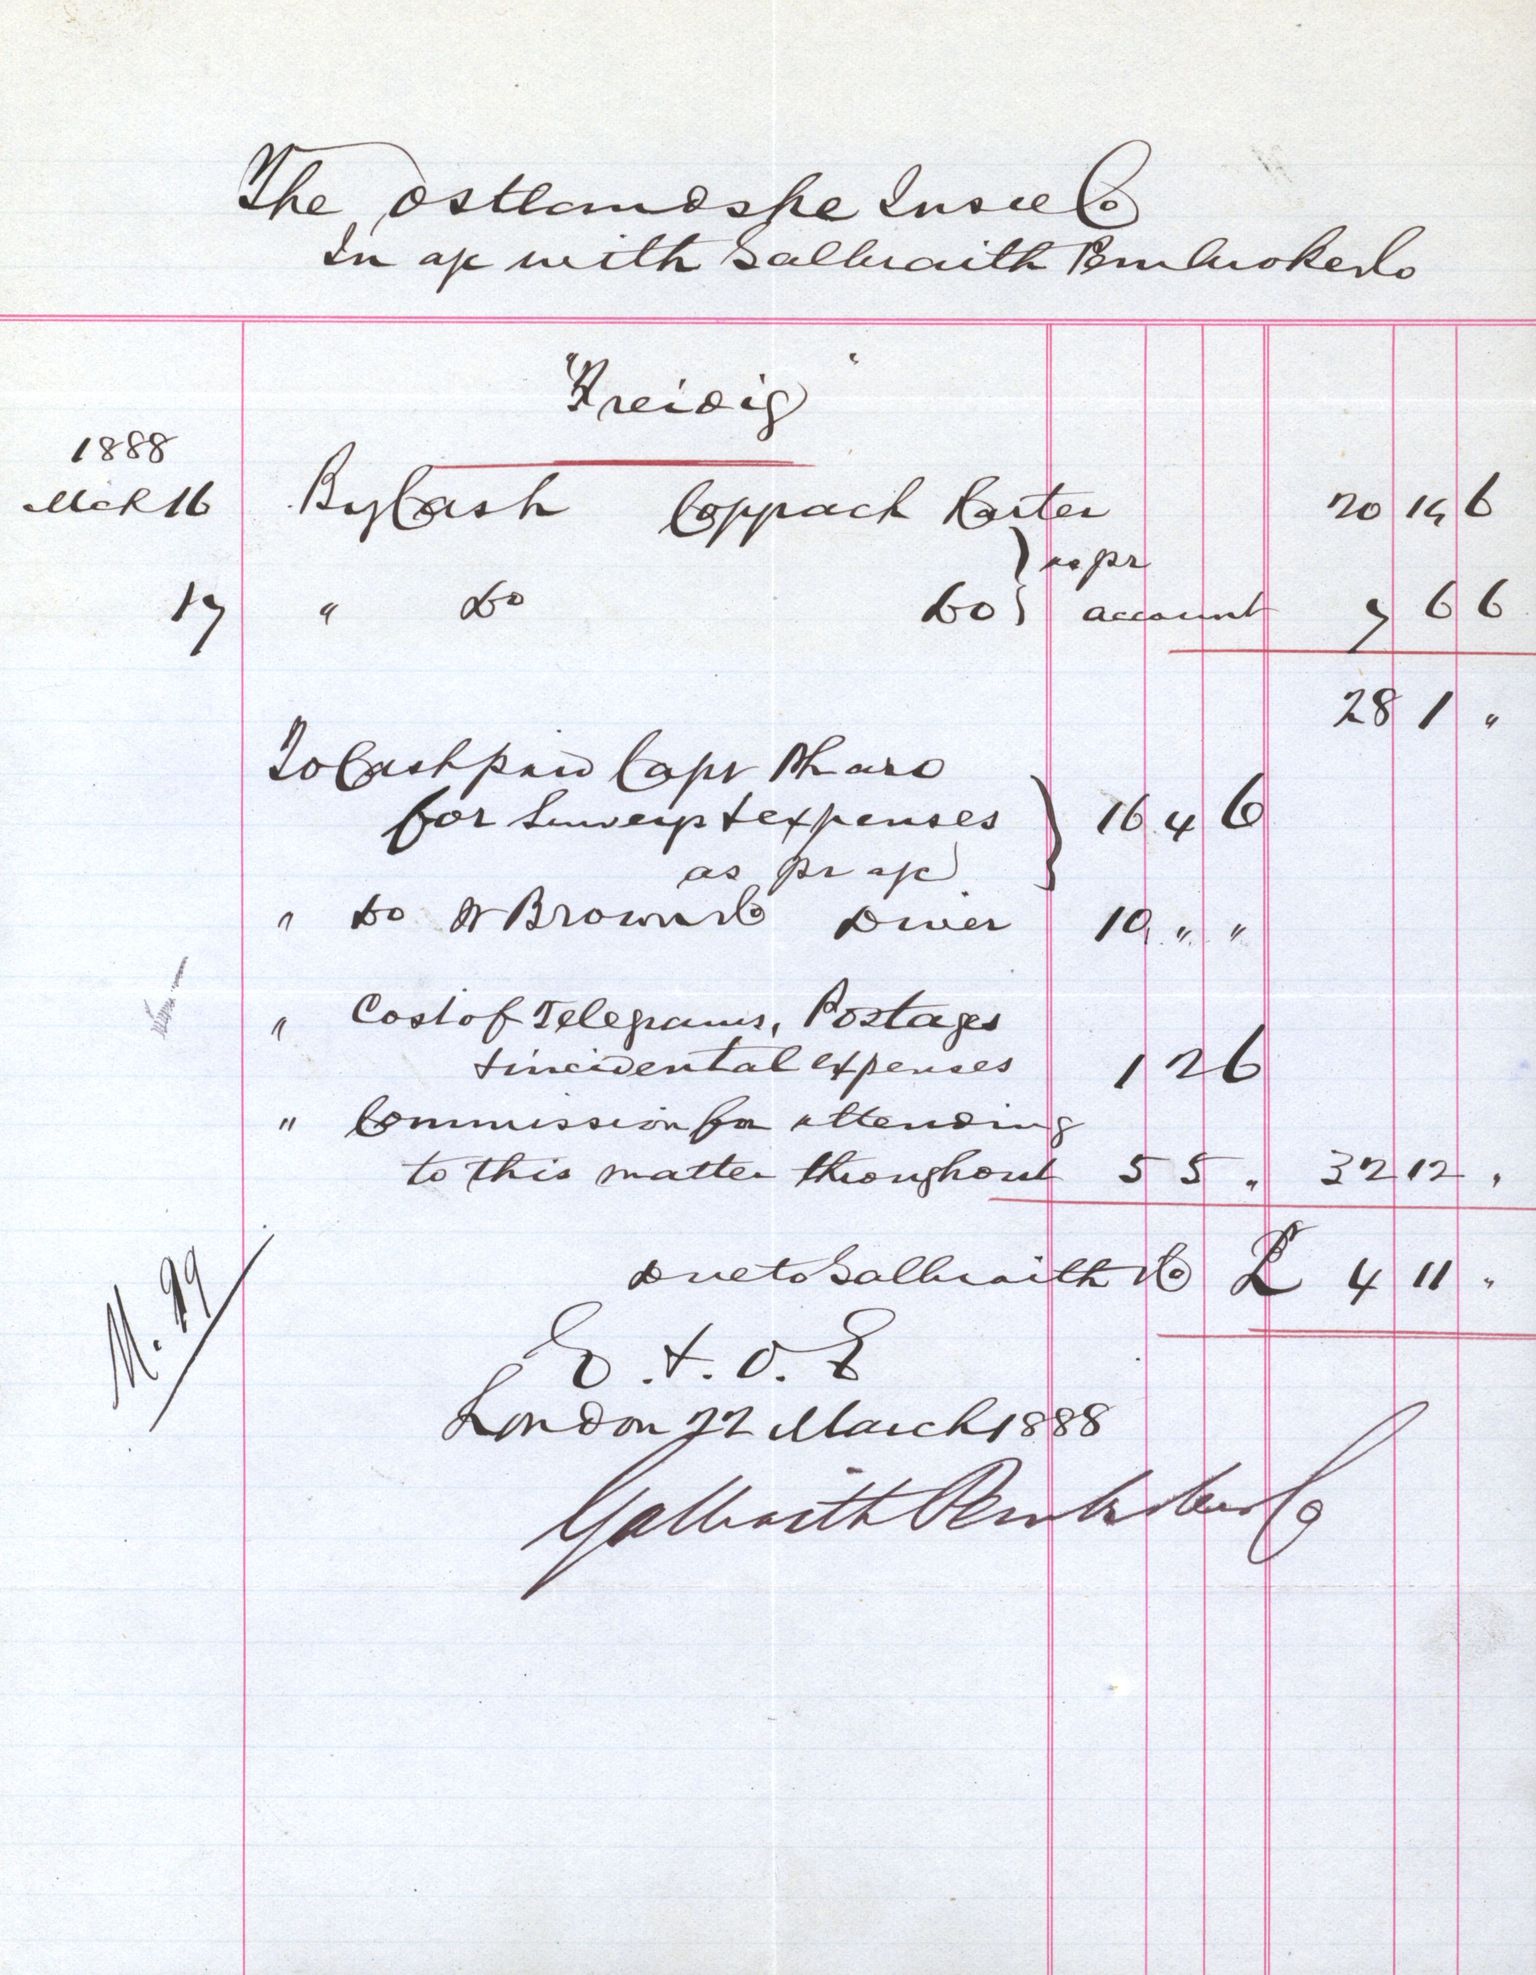 The Ostlandske Insce Co
In a/c with Galbraith Pembroke & Co
"Freidig"
1888
Mch 16 By Cash Coppack Carter 20 14 6
} as pr
17 " Do Do } account 7 6 6
28 1 "
To Cash paid Capt Pharo
for Survey & expenses } 16 4 6
as pr a/c
" Do W Brown & Co Diver 10 " "
" Cost of Telegrams, Postages
& incidental expenses 1 2 6
" Commission for attending
to this matter throughout 5 5 " 32 12 "
Due to Galbraith & Co £ 4 11 "
E. & O. E
London 22 March 1888
Galbraith Pembroke & Co
M. 99